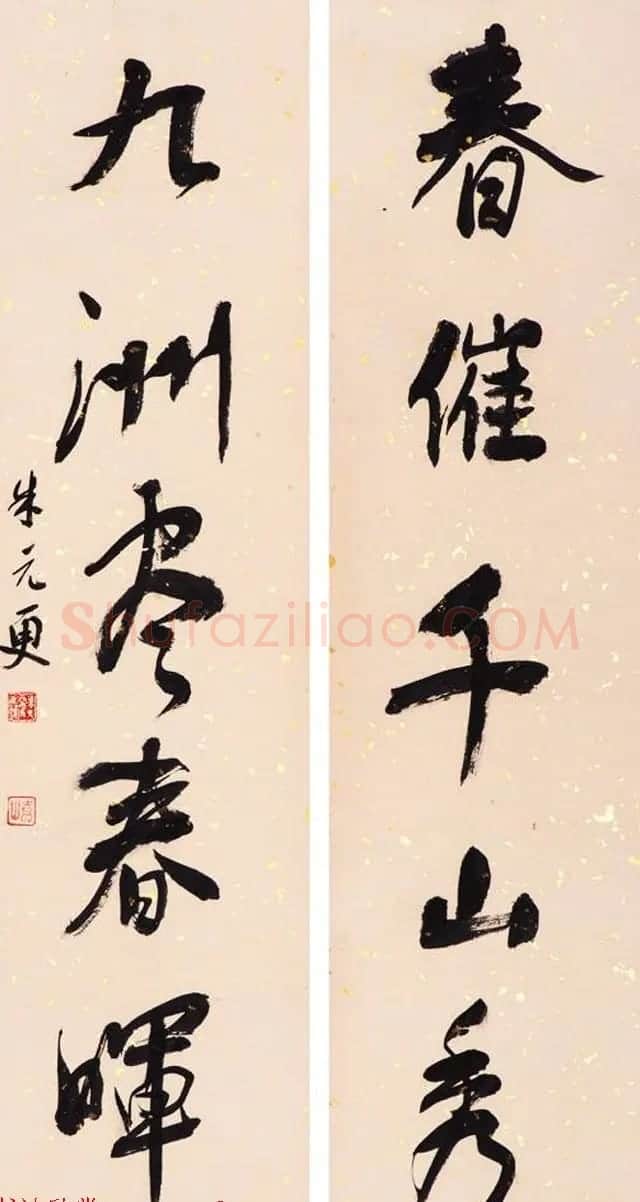 春催千山秀
九洲尽春暉
朱元更
Shufaziliao.COM